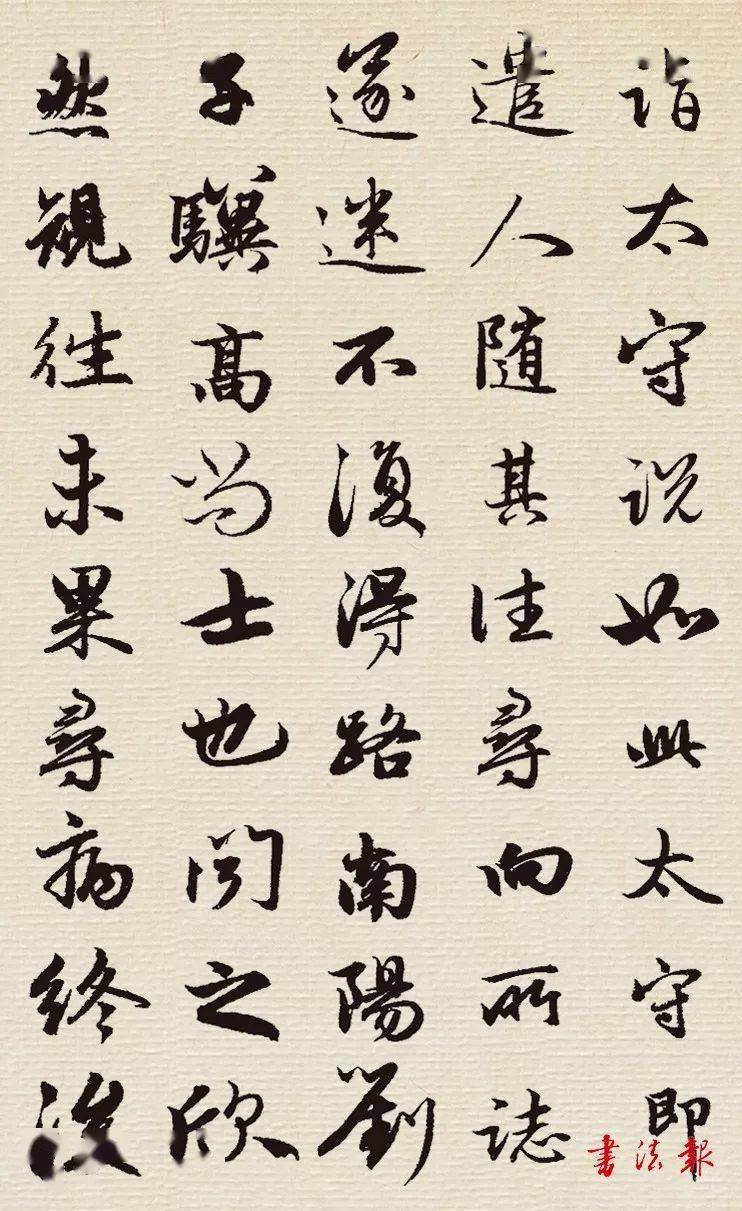 詣太守说如此太守即
遣人随其往尋向所誌
遂迷不復得路南陽劉
子驥高尚士也闻之欣
然覌往未果尋病終後
书法報